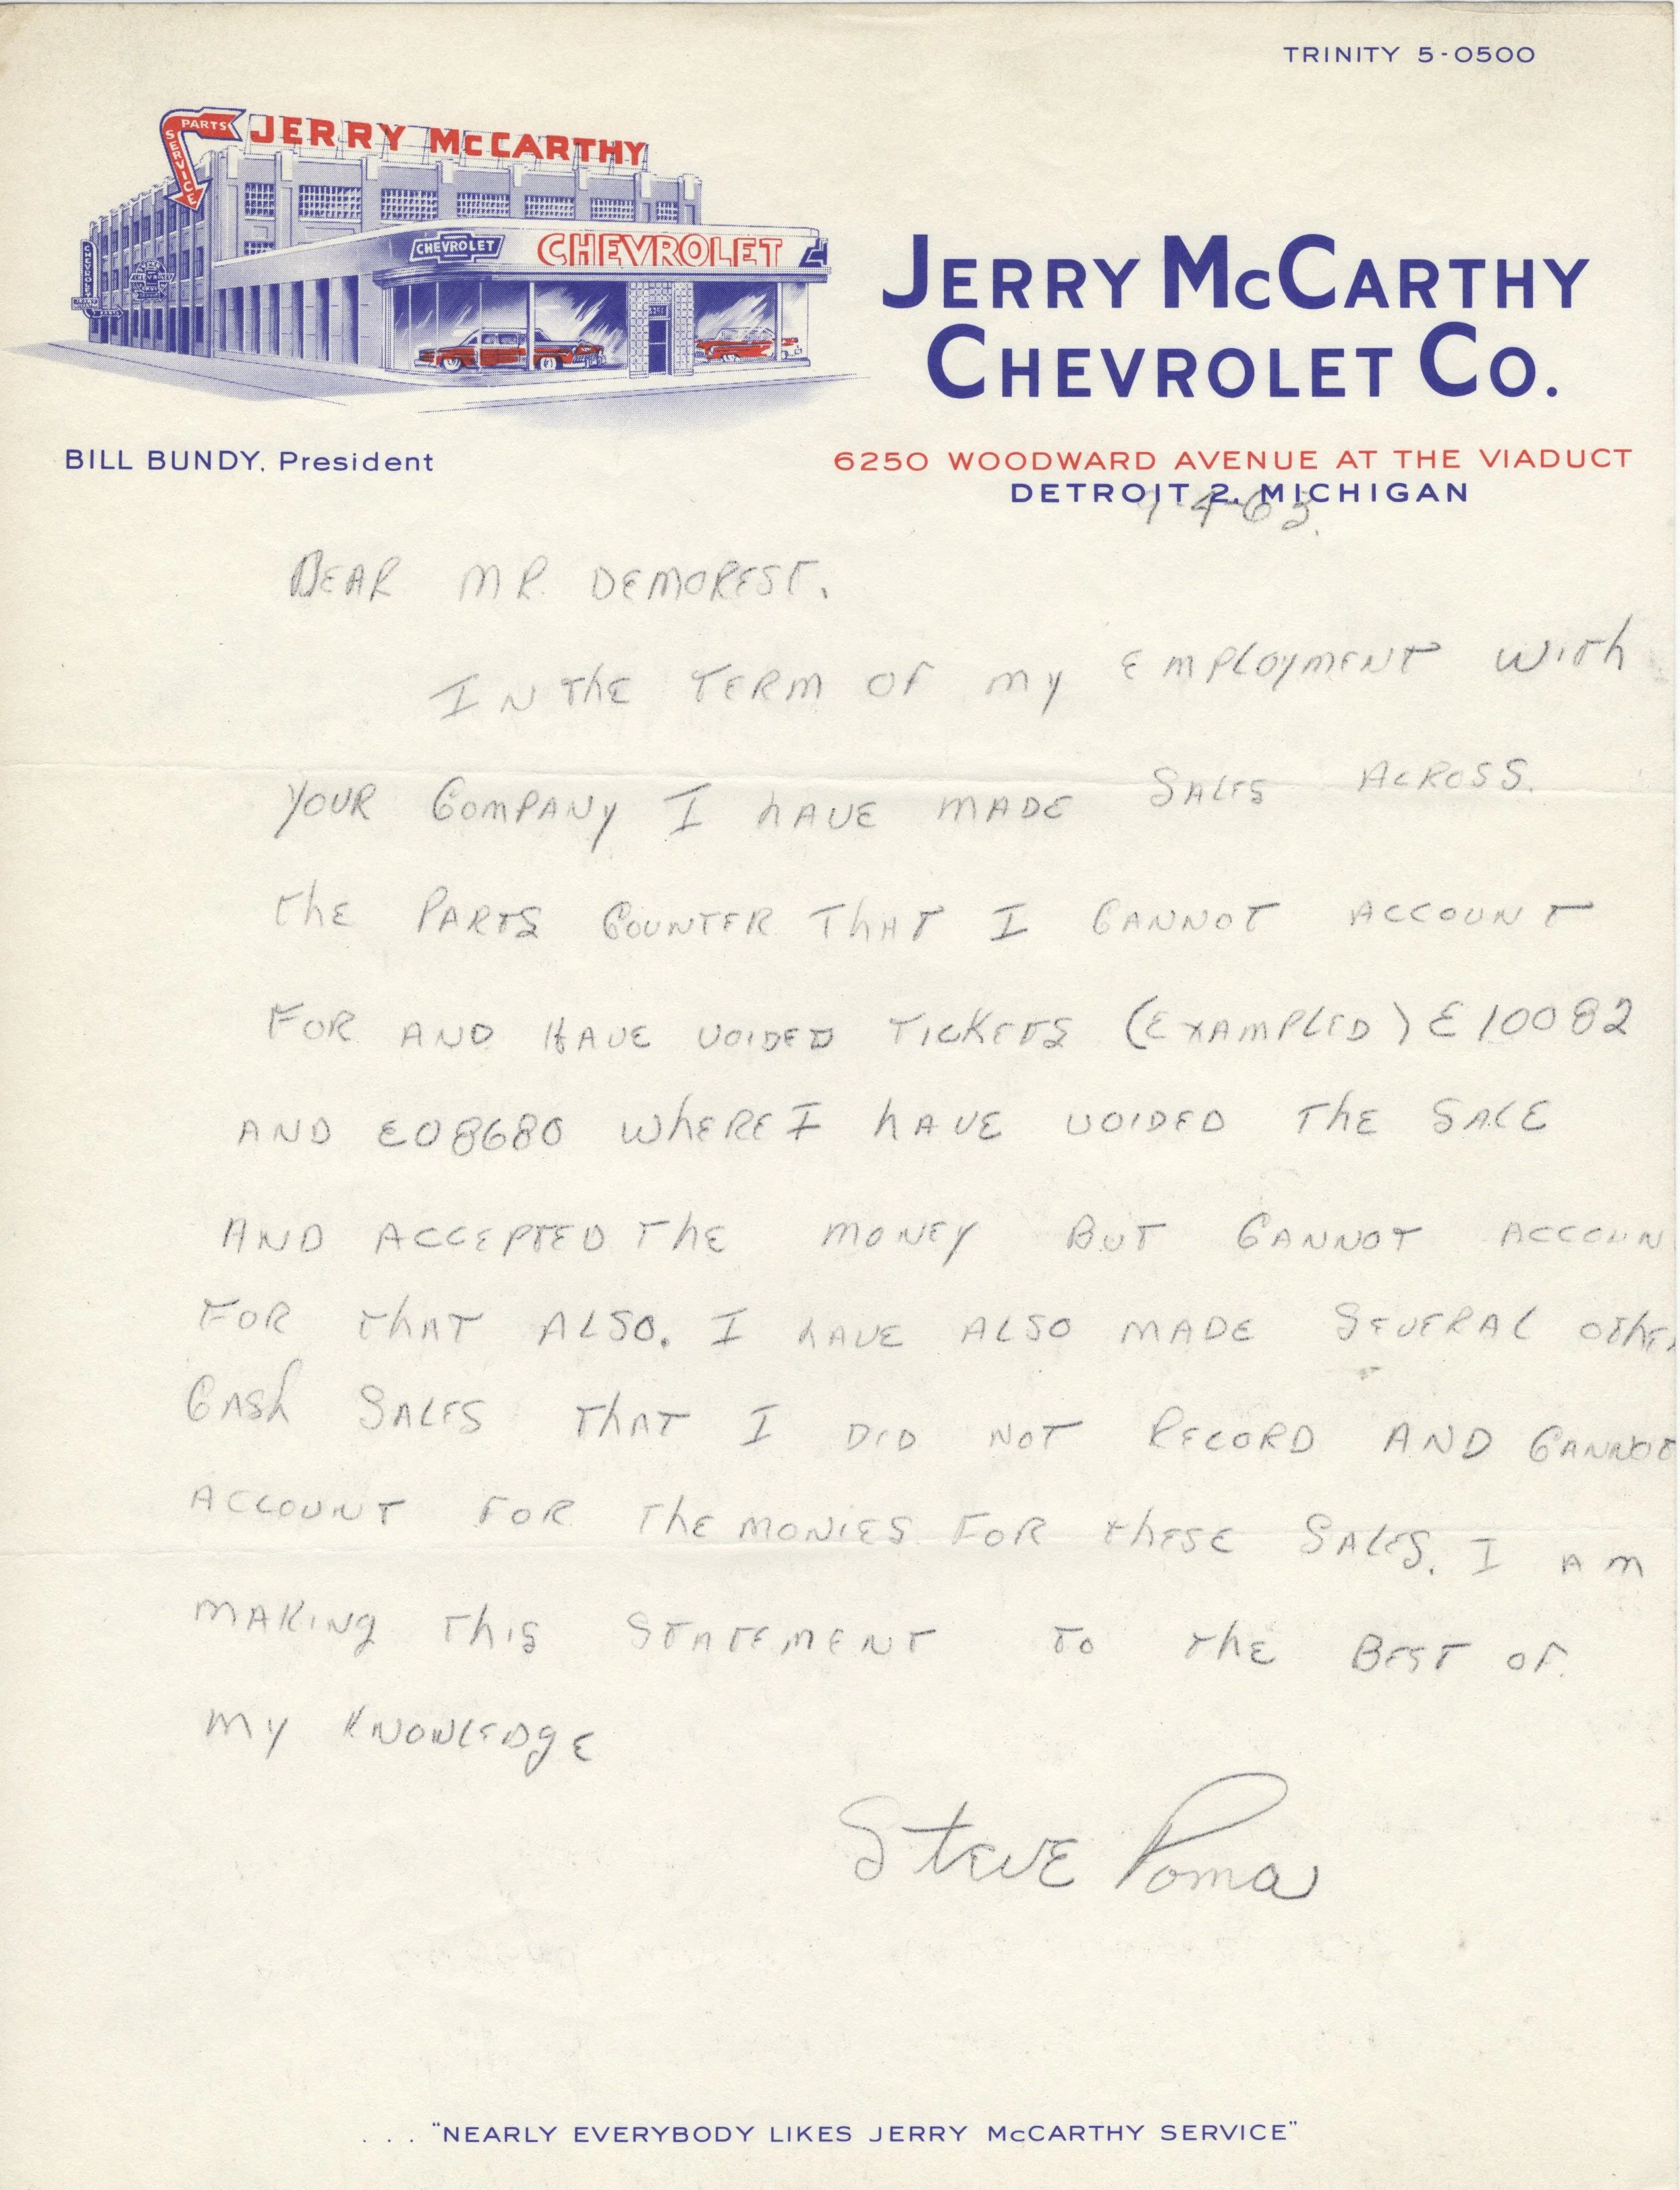 TRINITY 5-0500
PARTS
SERVICE
JERRY McCARTHY
CHEVROLET
CHEVROLET
CHEVROLET
JERRY McCARTHY
CHEVROLET CO.
BILL BUNDY, President
6250 WOODWARD AVENUE AT THE VIADUCT
DETROIT 2, MICHIGAN
9-4-63.
DEAR MR. DEMOREST.
IN THE TERM OF MY EMPLOYMENT WITH
YOUR COMPANY I HAVE MADE SALES ACROSS.
THE PARTS COUNTER THAT I CANNOT ACCOUNT
FOR AND HAVE VOIDED TICKETS (EXAMPLED) E10082
AND E08680 WHERE I HAVE VOIDED THE SALE
AND ACCEPTED THE MONEY BUT CANNOT ACCOUN
FOR THAT ALSO. I HAVE ALSO MADE SEVERAL OTHER
CASH SALES THAT I DID NOT RECORD AND CANNOT
ACCOUNT FOR THE MONIES FOR THESE SALES. I AM
MAKING THIS STATEMENT TO THE BEST OF
MY KNOWLEDGE
Steve Poma
. . . "NEARLY EVERYBODY LIKES JERRY McCARTHY SERVICE"